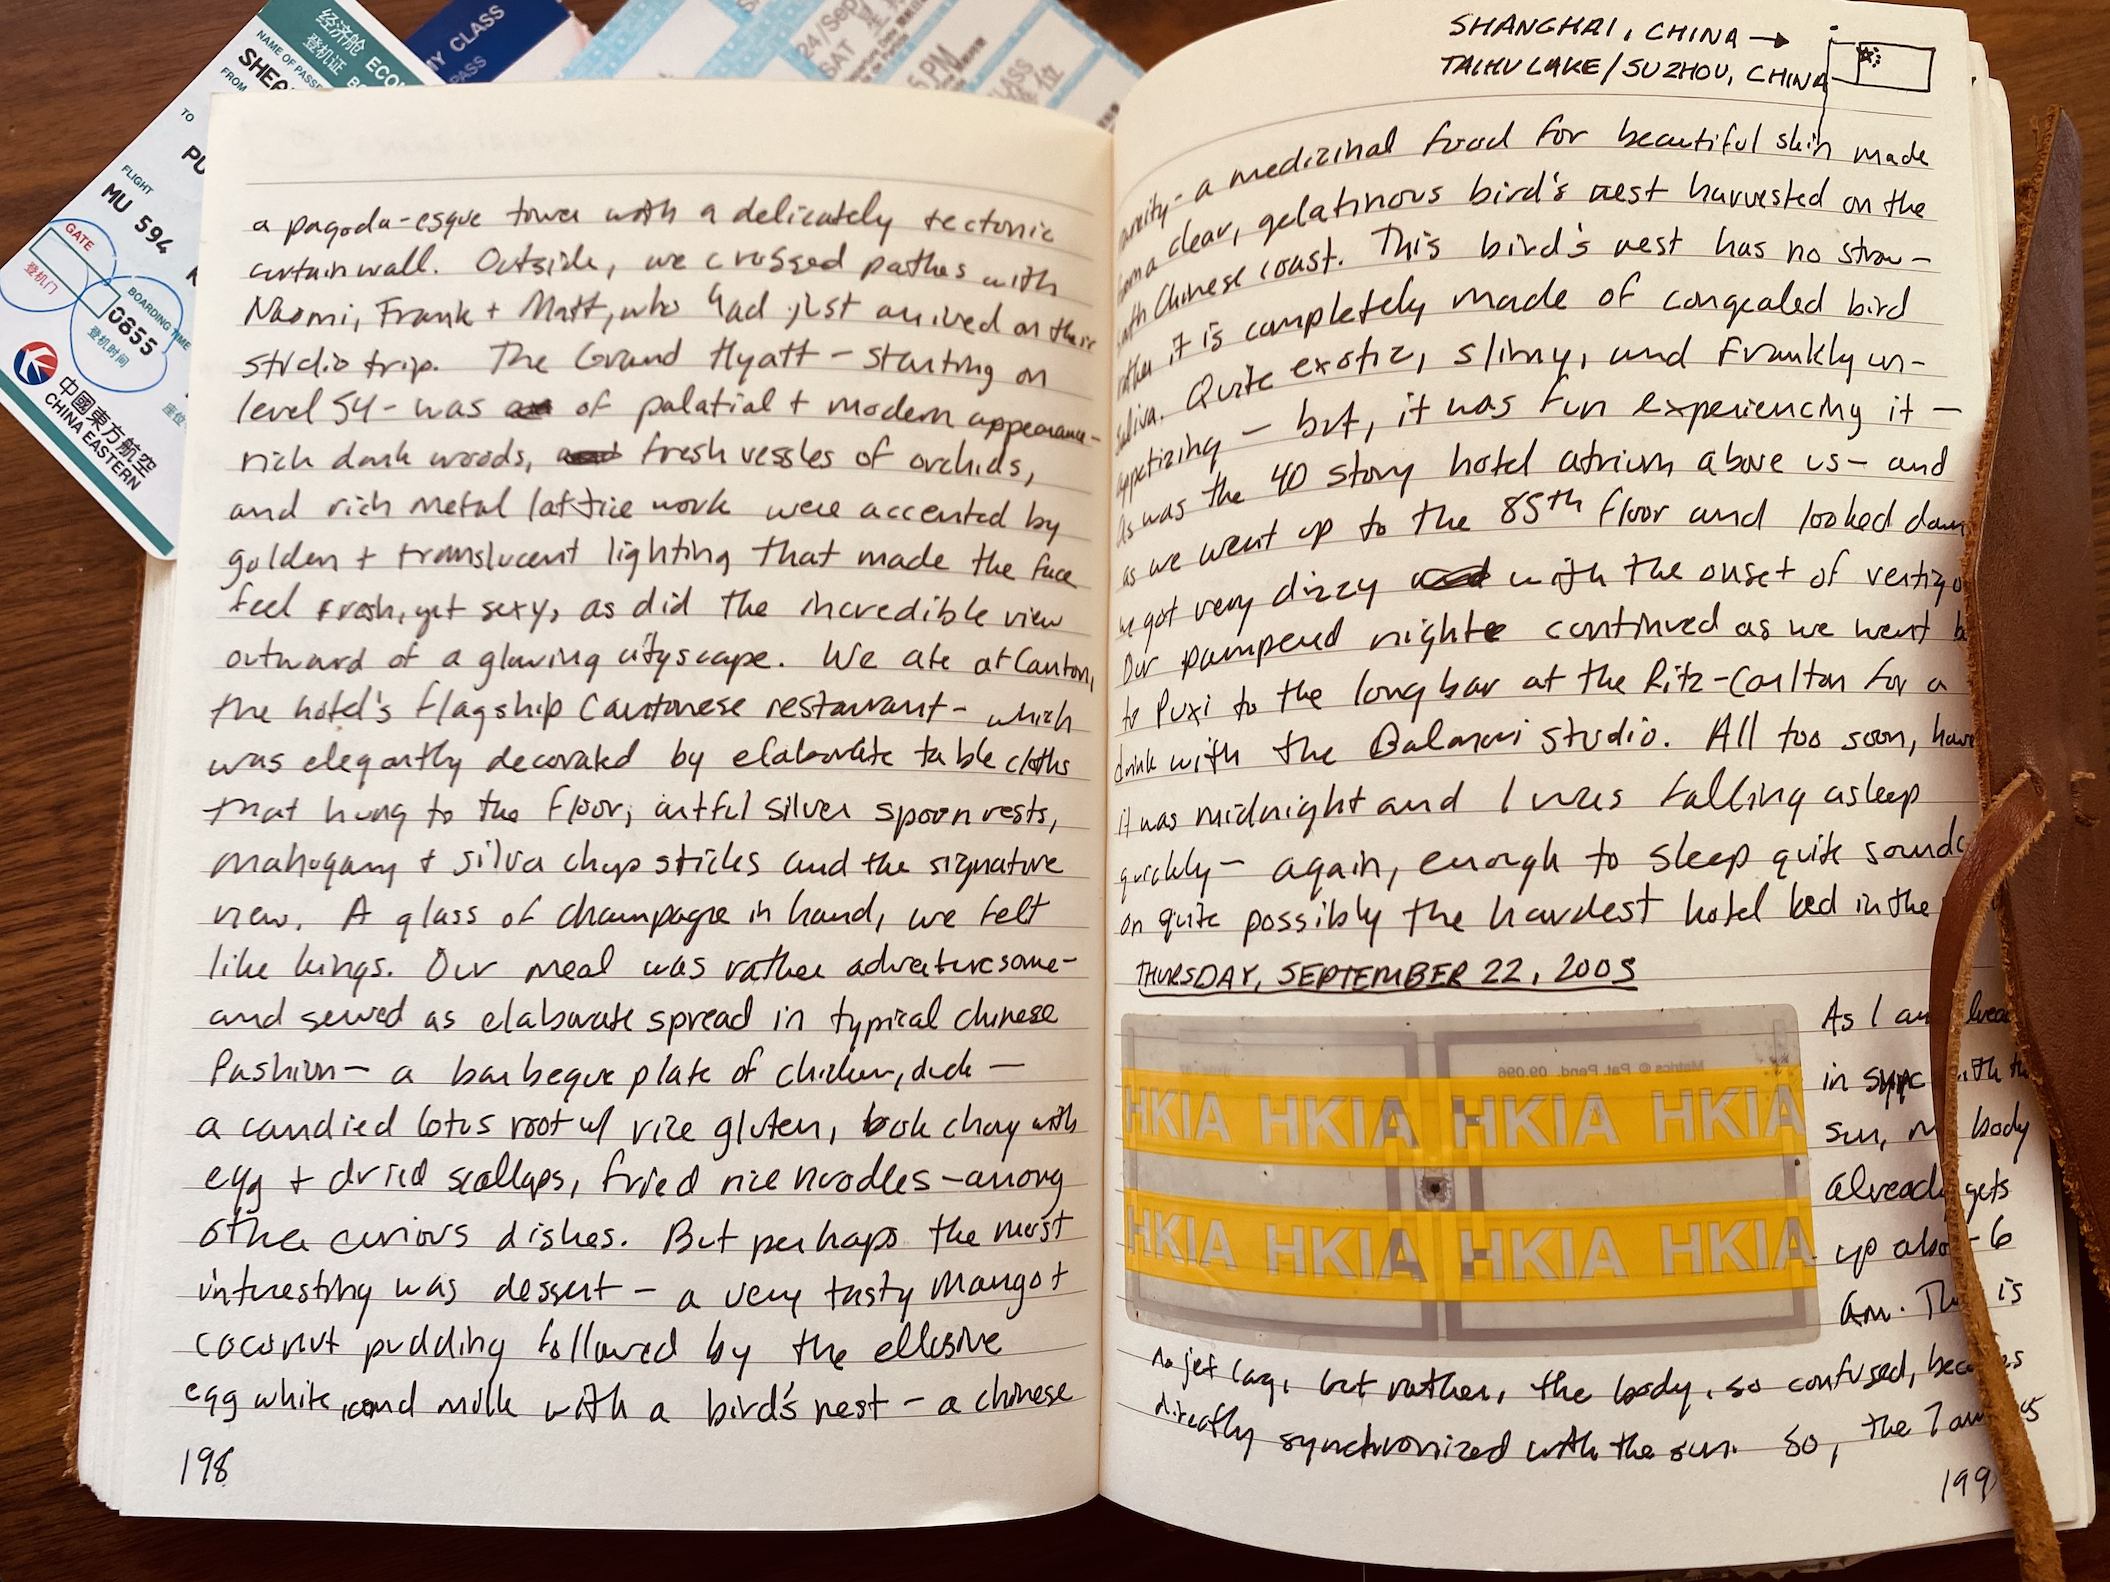 经济舱
登机证
ECO
NAME OF PASS
SHEA
FROM
TO
PU
FLIGHT
MU 594
GATE
登机门
BOARDING TIME
0855
登机时间
座位
中國東方航空
CHINA EASTERN
MY CLASS
PASS
24/Sep
SAT
5 PM
a pagoda-esque tower with a delicately tectonic
curtain wall. Outside, we crossed pathes with
Naomi, Frank + Matt, who had just arrived on their
studio trip. The Grand Hyatt - starting on
level 54 - was of palatial + modern appearance -
rich dark woods, fresh vessles of orchids,
and rich metal lattice work were accented by
golden + translucent lighting that made the face
feel fresh, yet sexy, as did the incredible view
outward of a glowing cityscape. We ate at Canton,
the hotel's flagship Cantonese restaurant - which
was elegantly decorated by elaborate table cloths
that hung to the floor, artful silver spoon rests,
mahogany + silver chop sticks and the signature
view. A glass of champagne in hand, we felt
like kings. Our meal was rather adventuresome -
and served as elaborate spread in typical chinese
fashion - a barbeque plate of chicken, duck -
a candied lotus root w/ rice gluten, bok choy with
egg + dried scallops, fried rice noodles - among
other curious dishes. But perhaps the most
interesting was dessert - a very tasty mango +
coconut pudding followed by the ellusive
egg white and milk with a bird's nest - a chinese
198
SHANGHAI, CHINA →
TAIHU LAKE/SUZHOU, CHINA
- a medicinal food for beautiful skin made
from a clear, gelatinous bird's nest harvested on the
south Chinese coast. This bird's nest has no straw -
rather it is completely made of congealed bird
saliva. Quite exotic, slimy, and frankly un-
appetizing - but, it was fun experiencing it -
as was the 40 story hotel atrium above us - and
as we went up to the 85th floor and looked down
we got very dizzy with the onset of vertigo
Our pampered night continued as we went b
to Puxi to the long bar at the Ritz-Carlton for a
drink with the Balmori studio. All too soon, how
it was midnight and I was falling asleep
quickly - again, enough to sleep quite sound
on quite possibly the hardest hotel bed in the
THURSDAY, SEPTEMBER 22, 2005
Matrics © Pat. Pend. 09.096
HKIA HKIA HKIA HKIA
HKIA HKIA HKIA HKIA
As I am
in sync with th
sun, m body
already gets
up abo 6
am. Th is
no jet lag, but rather, the body, so confused, bec
directly synchronized with the sun. So, the 7 am
199